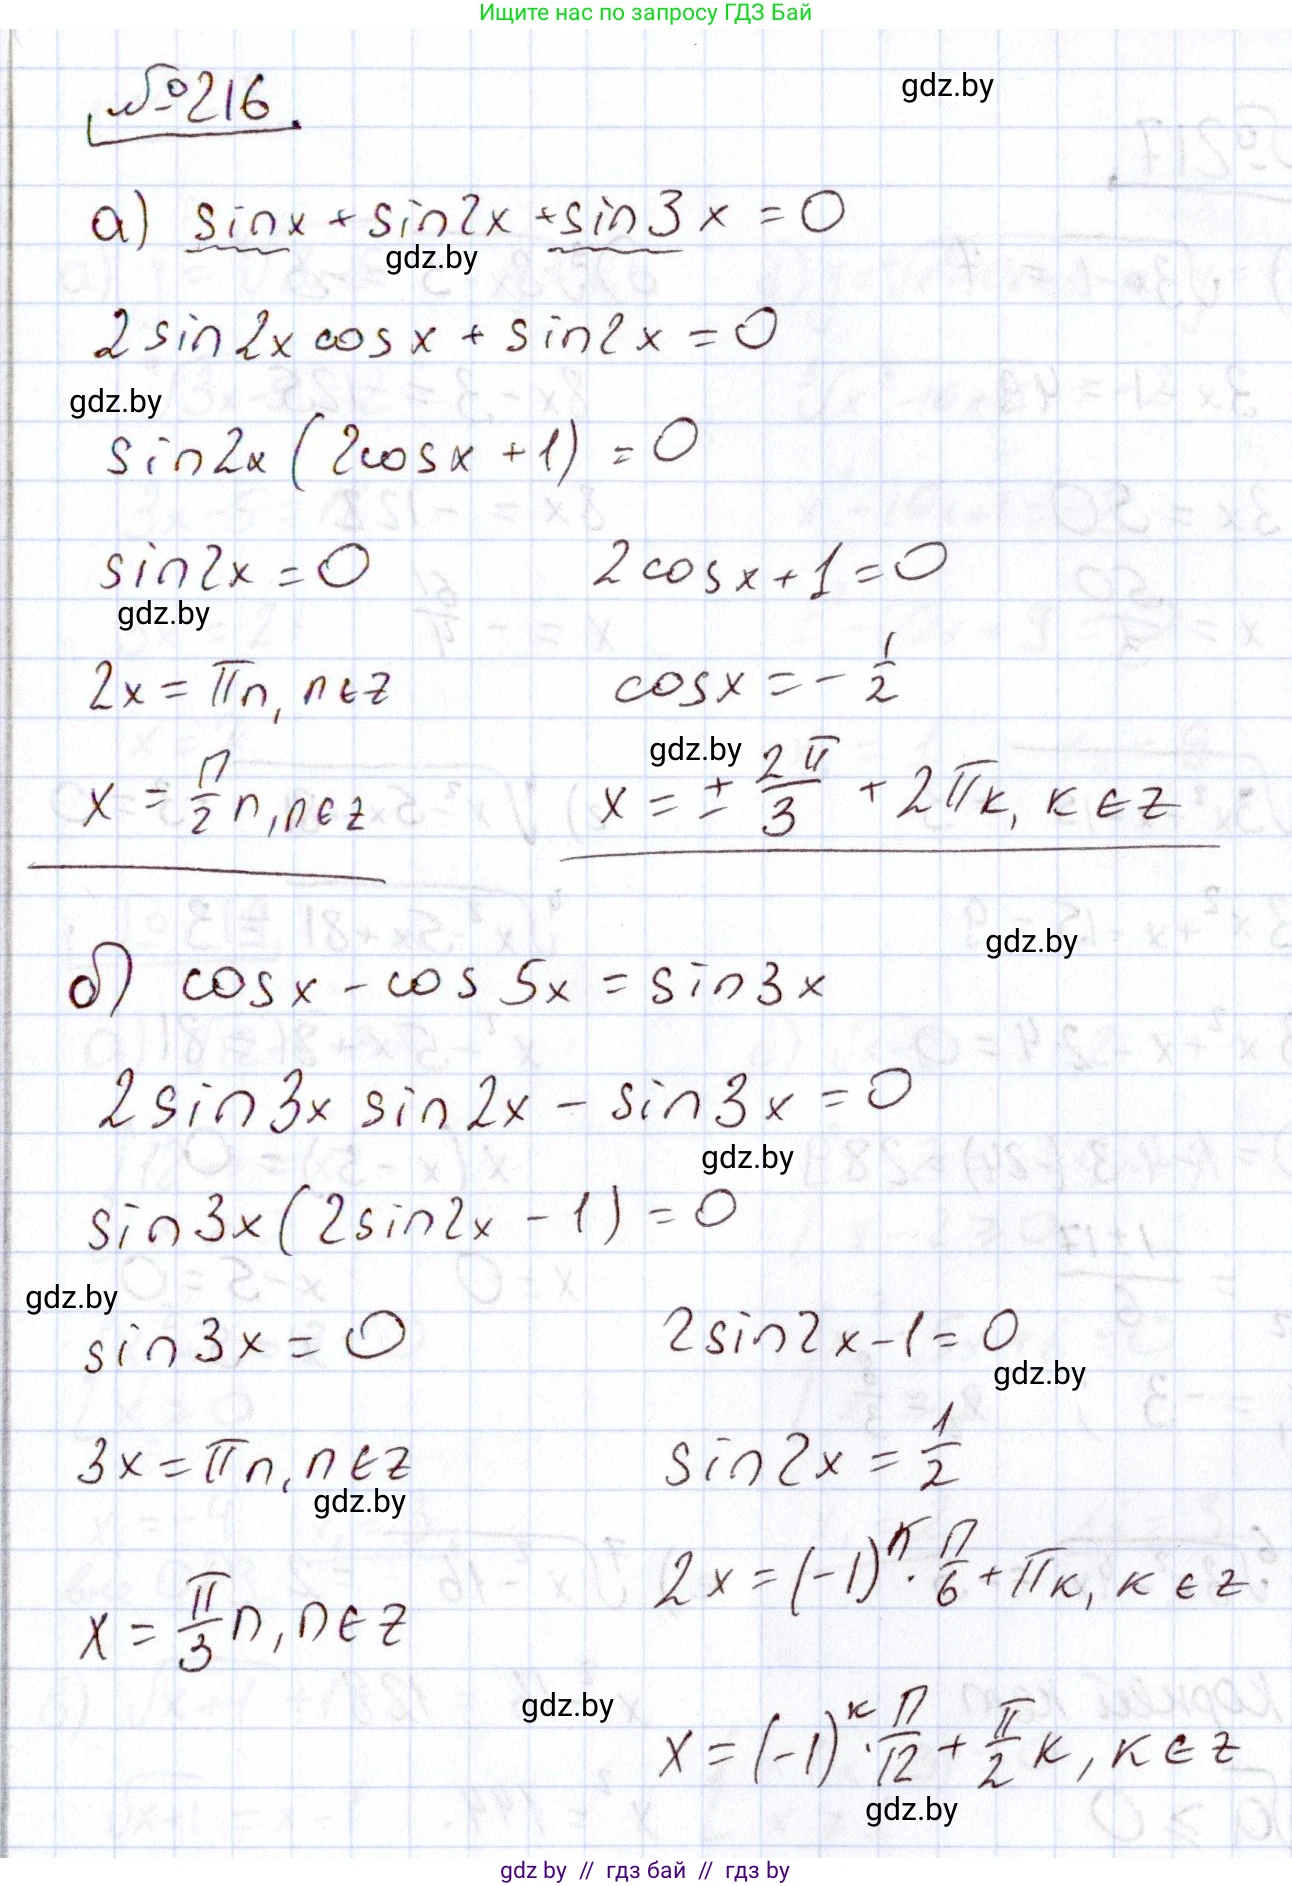 Ищите нас по запросу ГДЗ Бай
№216
gdz.by
а) sinx + sin2x + sin3x = 0
gdz.by
2sin2x cosx + sin2x = 0
gdz.by
sin2x (2cosx + 1) = 0
sin2x = 0 2cosx + 1 = 0
gdz.by
2x = πn, n∈Z cosx = - 1/2
gdz.by
x = π/2 n, n∈Z x = ± 2π/3 + 2πк, к∈Z
gdz.by
б) cosx - cos 5x = sin3x
2sin3x sin2x - sin3x = 0
gdz.by
sin3x (2sin2x - 1) = 0
gdz.by
sin3x = 0 2sin2x - 1 = 0
gdz.by
3x = πn, n∈Z sin2x = 1/2
gdz.by
2x = (-1)^к · π/6 + πк, к∈Z
x = π/3 n, n∈Z
gdz.by
x = (-1)^к · π/12 + π/2 к, к∈Z
gdz.by
gdz by // гдз бай // гдз by